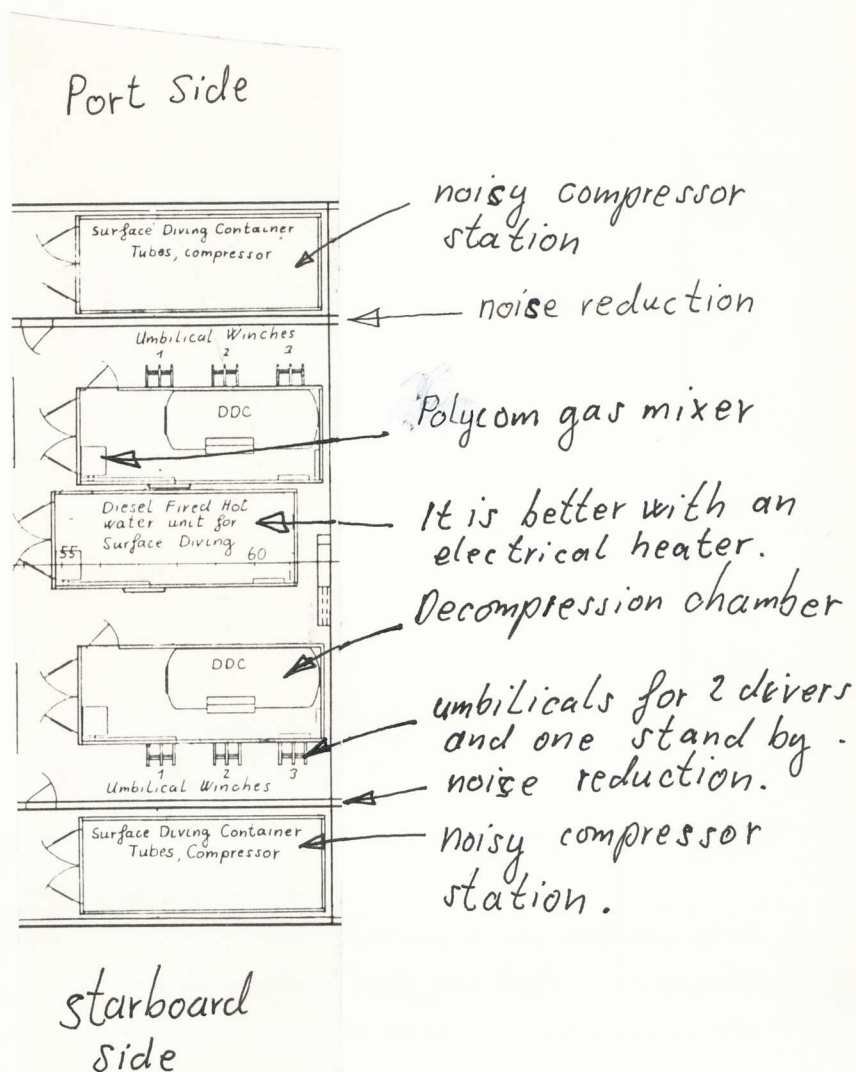 Port Side
Surface Diving Container
Tubes, compressor
noisy compressor
station
noise reduction
Umbilical Winches
1 2 3
DDC
Polycom gas mixer
Diesel Fired Hot
water unit for
Surface Diving
55 60
It is better with an
electrical heater.
Decompression chamber
DDC
umbilicals for 2 divers
and one stand by.
1 2 3
Umbilical Winches
noise reduction.
Surface Diving Container
Tubes, Compressor
noisy compressor
station.
starboard
side